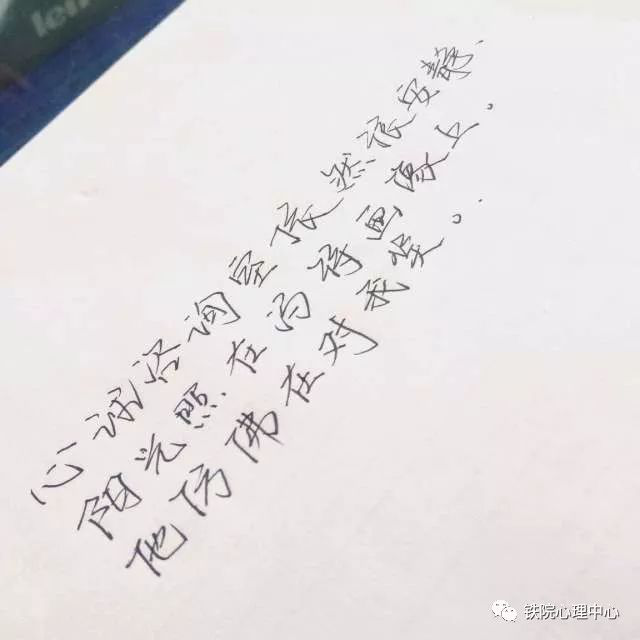 len
心理咨询室依然很安静.
阳光照在冯特画像上。
他仿佛在对我笑。.
铁院心理中心